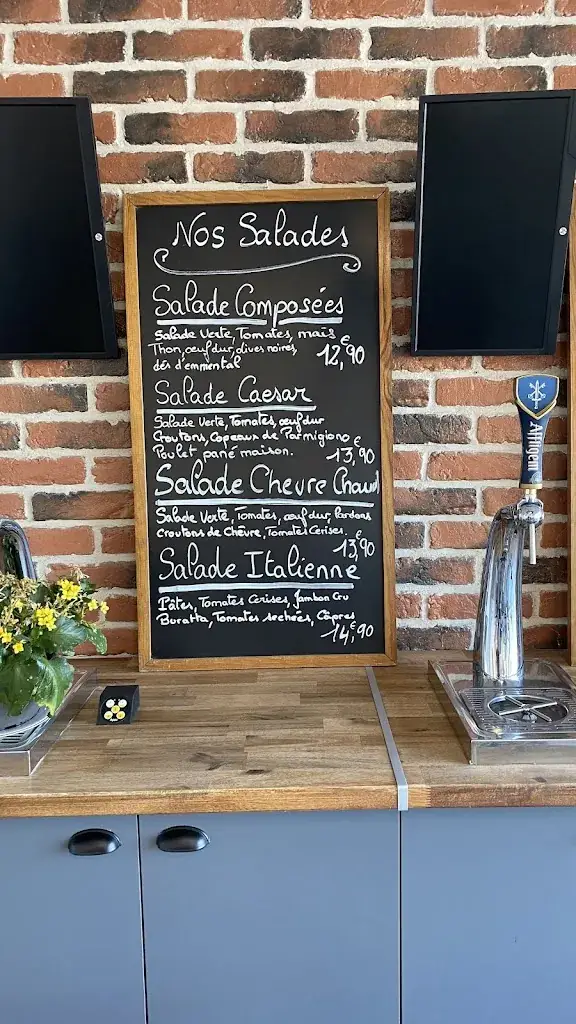 Nos Salades
Salade Composées
Salade Verte, Tomates, maïs
Thon, œuf dur, olives noires,
dés d'emmental
12,€90
Salade Caesar
Salade Verte, Tomates, œuf dur
Croutons, Copeaux de Parmigiano
Poulet pané maison.
13,€90
Salade Chevre Chaud
Salade Verte, Tomates, œuf dur, Lardons
croutons de Chèvre, Tomates Cerises.
13,€90
Salade Italienne
Pâtes, Tomates Cerises, Jambon Cru
Buratta, Tomates sechées, Câpres
14,€90
Affligem